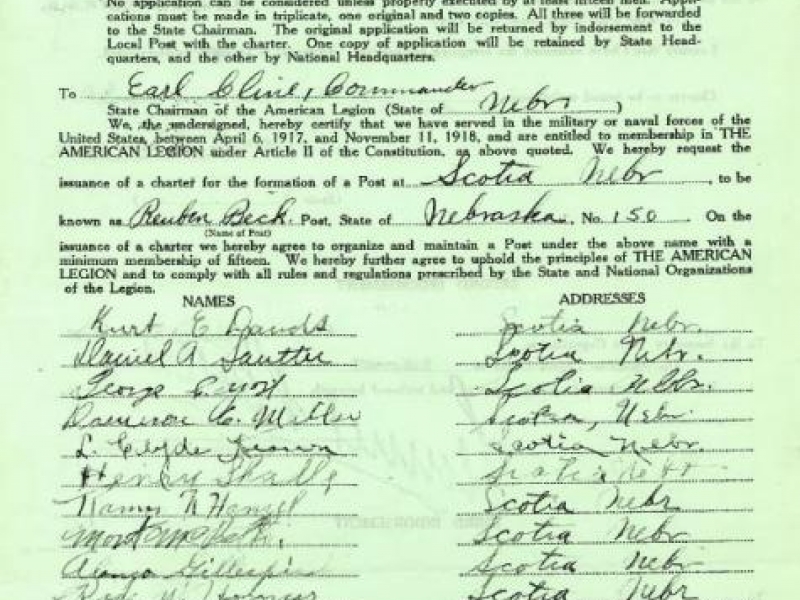 No application can be considered unless properly executed by at least fifteen men. Appli-
cations must be made in triplicate, one original and two copies. All three will be forwarded
to the State Chairman. The original application will be returned by indorsement to the
Local Post with the charter. One copy of application will be retained by State Head-
quarters, and the other by National Headquarters.
To Earl Cline, Commander
State Chairman of the American Legion (State of Nebr)
We, the undersigned, hereby certify that we have served in the military or naval forces of the
United States, between April 6, 1917, and November 11, 1918, and are entitled to membership in THE
AMERICAN LEGION under Article II of the Constitution, as above quoted. We hereby request the
issuance of a charter for the formation of a Post at Scotia Nebr, to be
known as Reuben Beck Post, State of Nebraska, No. 150 On the
(Name of Post)
issuance of a charter we hereby agree to organize and maintain a Post under the above name with a
minimum membership of fifteen. We hereby further agree to uphold the principles of THE AMERICAN
LEGION and to comply with all rules and regulations prescribed by the State and National Organizations
of the Legion.
NAMES ADDRESSES
Kurt E Scotia Nebr.
Daniel A Sautter Scotia Nebr.
George E. Yost Scotia Nebr.
C. Miller Scotia, Nebr.
L. Clyde Scotia Nebr.
Henry
Scotia Nebr
Scotia Nebr
Gillespie Scotia Nebr
Scotia Nebr